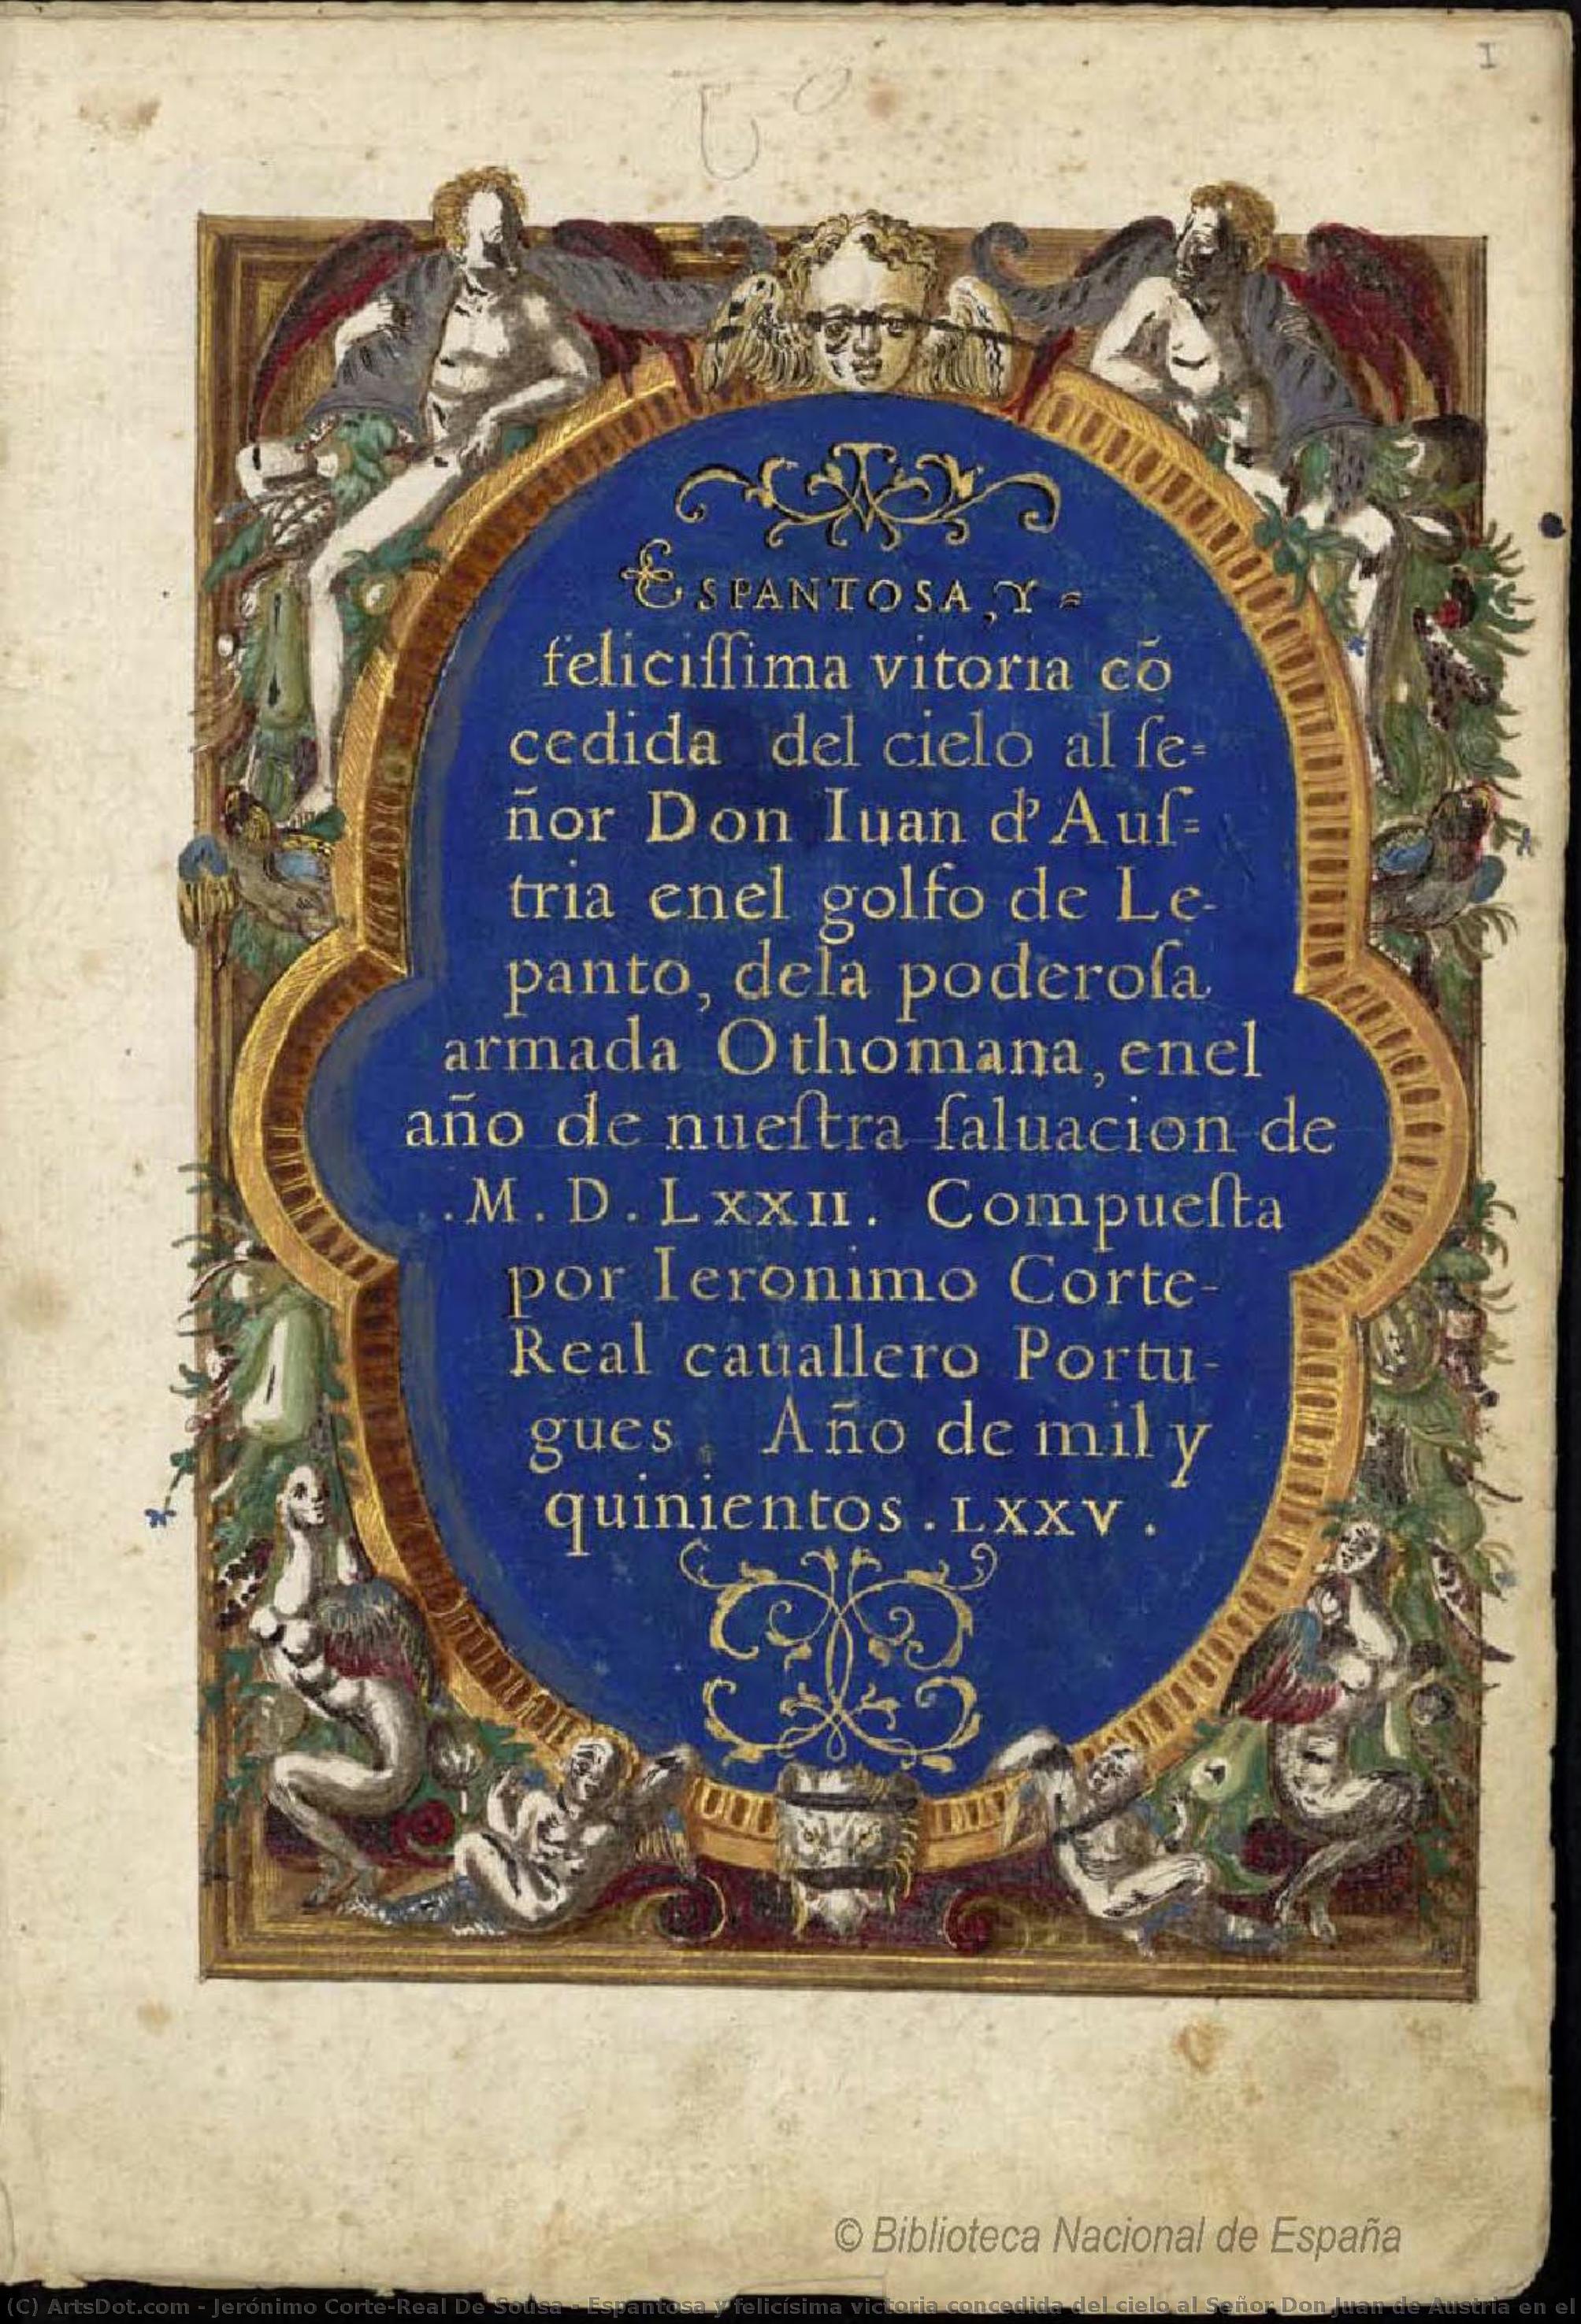 I
ESPANTOSA, Y=
feliciſſima vitoria cõ
cedida del cielo al ſe=
ñor Don Iuan d' Auſ=
tria enel golfo de Le-
panto, dela poderoſa
armada Othomana, enel
año de nueſtra ſaluacion de
.M.D.LXXII. Compueſta
por Ieronimo Corte-
Real cauallero Portu-
gues Año de mil y
quinientos.LXXV.
© Biblioteca Nacional de España
(C) ArtsDot.com - Jerónimo Corte-Real De Sousa - Espantosa y felicísima victoria concedida del cielo al Señor Don Juan de Austria en el